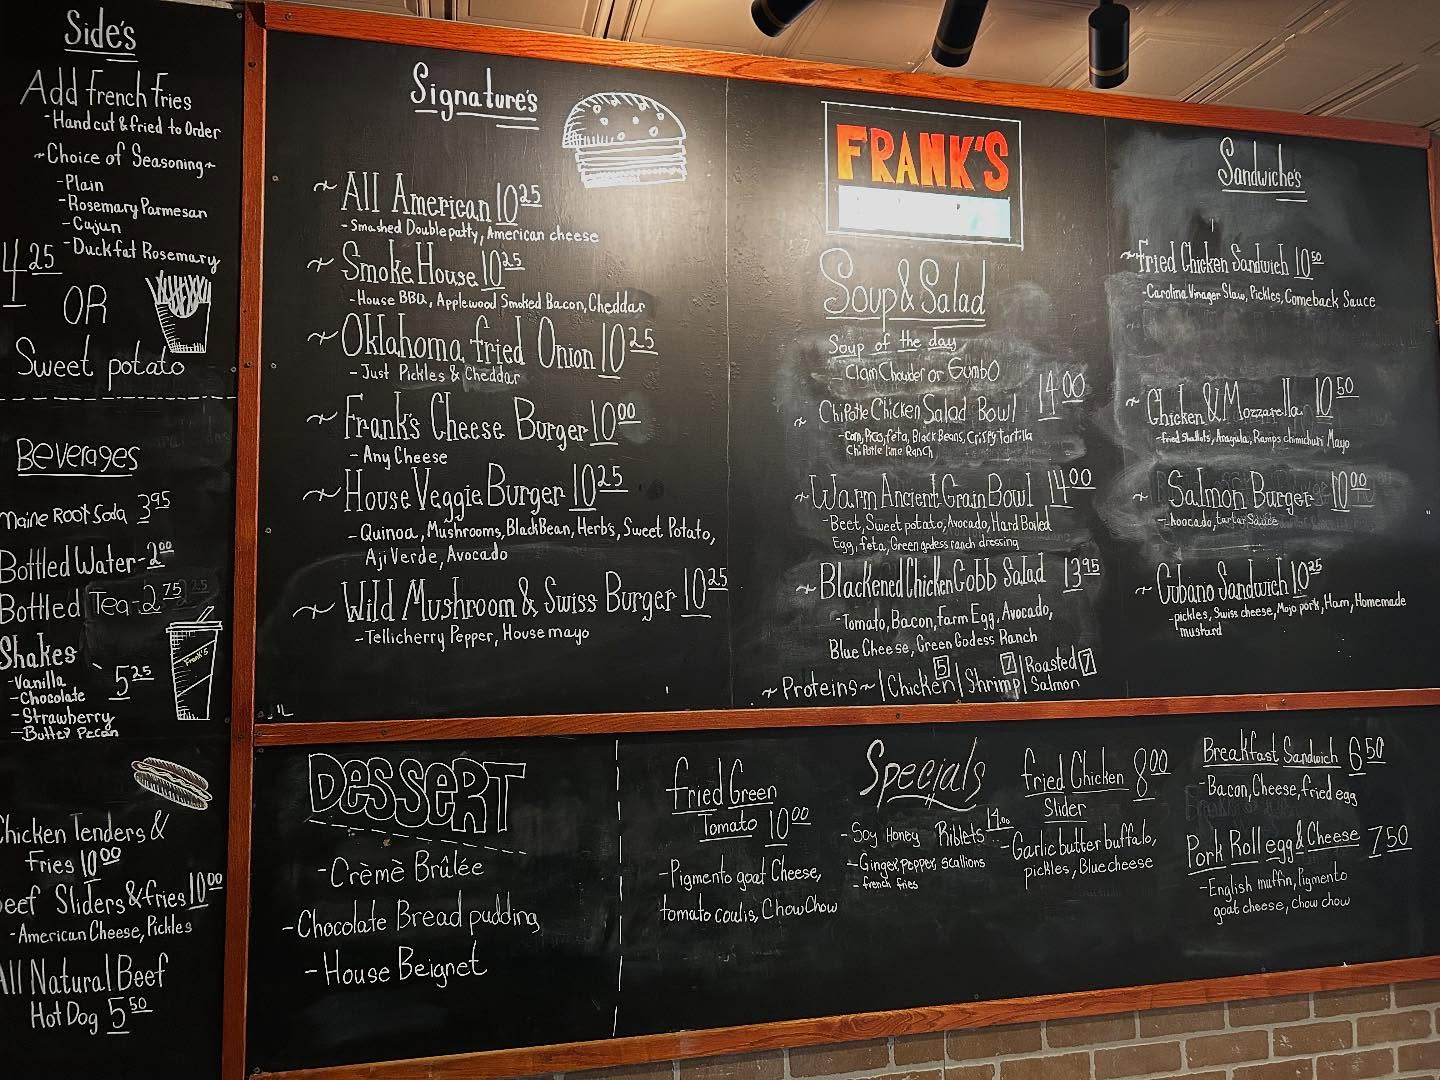 Side's
Add French Fries
-Handcut & fried to Order
~Choice of Seasoning~
-Plain
-Rosemary Parmesan
-Cajun
-Duckfat Rosemary
4 25
OR
Sweet potato
Beverages
Maine Root Soda 3 95
Bottled Water-2 00
Bottled Tea-2 75
Shakes
-Vanilla
-Chocolate
-Strawberry
-Butter Pecan
5 25
Frank's
Chicken Tenders &
Fries 10 00
Beef Sliders & fries 10 00
-American Cheese, Pickles
All Natural Beef
Hot Dog 5 50
Signature's
~ All American 10 25
-Smashed Double patty, American cheese
~ Smoke House 10 25
-House BBQ, Applewood Smoked Bacon, Cheddar
~ Oklahoma fried Onion 10 25
- Just Pickles & Cheddar
~ Frank's Cheese Burger 10 00
- Any Cheese
~ House Veggie Burger 10 25
-Quinoa, Mushrooms, Black Bean, Herb's, Sweet Potato,
Aji Verde, Avocado
~ Wild Mushroom & Swiss Burger 10 25
-Tellicherry Pepper, House mayo
FRANK'S
Soup & Salad
Soup of the day
- Clam Chowder or Gumbo
~ Chipotle Chicken Salad Bowl 14 00
-Corn, Pico, feta, Black Beans, Crispy tortilla
Chipotle lime Ranch
~ Warm Ancient Grain Bowl 14 00
-Beet, Sweet potato, Avocado, Hard Boiled
Egg, feta, Green godess ranch dressing
~ Blackened Chicken Cobb Salad 13 95
-Tomato, Bacon, Farm Egg, Avocado,
Blue Cheese, Green Godess Ranch
~ Proteins ~ | Chicken 5 | Shrimp 7 | Roasted 7
Salmon
Sandwiche's
~ Fried Chicken Sandwich 10 50
-Carolina Vinager Slaw, Pickles, Comeback Sauce
~ Chicken & Mozzarella 10 50
-fried Shallots, Arugula, Ramps chimichuri Mayo
~ Salmon Burger 10 00
-Avocado, tartar Sauce
~ Cubano Sandwich 10 25
-pickles, Swiss cheese, Mojo pork, Ham, Homemade
mustard
Dessert
-Crèmè Brûlée
-Chocolate Bread pudding
-House Beignet
Specials
Fried Green
Tomato 10 00
-Pigmento goat Cheese,
tomato coulis, Chow Chow
- Soy Honey Riblets 14.00
-Ginger, pepper, scallions
- french fries
Fried Chicken 8 00
Slider
-Garlic butter buffalo,
pickles, Blue cheese
Breakfast Sandwich 6 50
-Bacon, Cheese, fried egg
Pork Roll egg & Cheese 7 50
-English muffin, Pigmento
goat cheese, chow chow